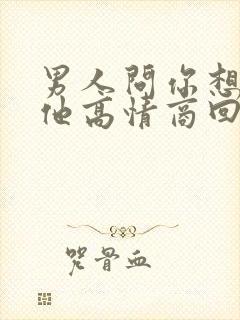 男人問你想
他高情商回
咒骨血